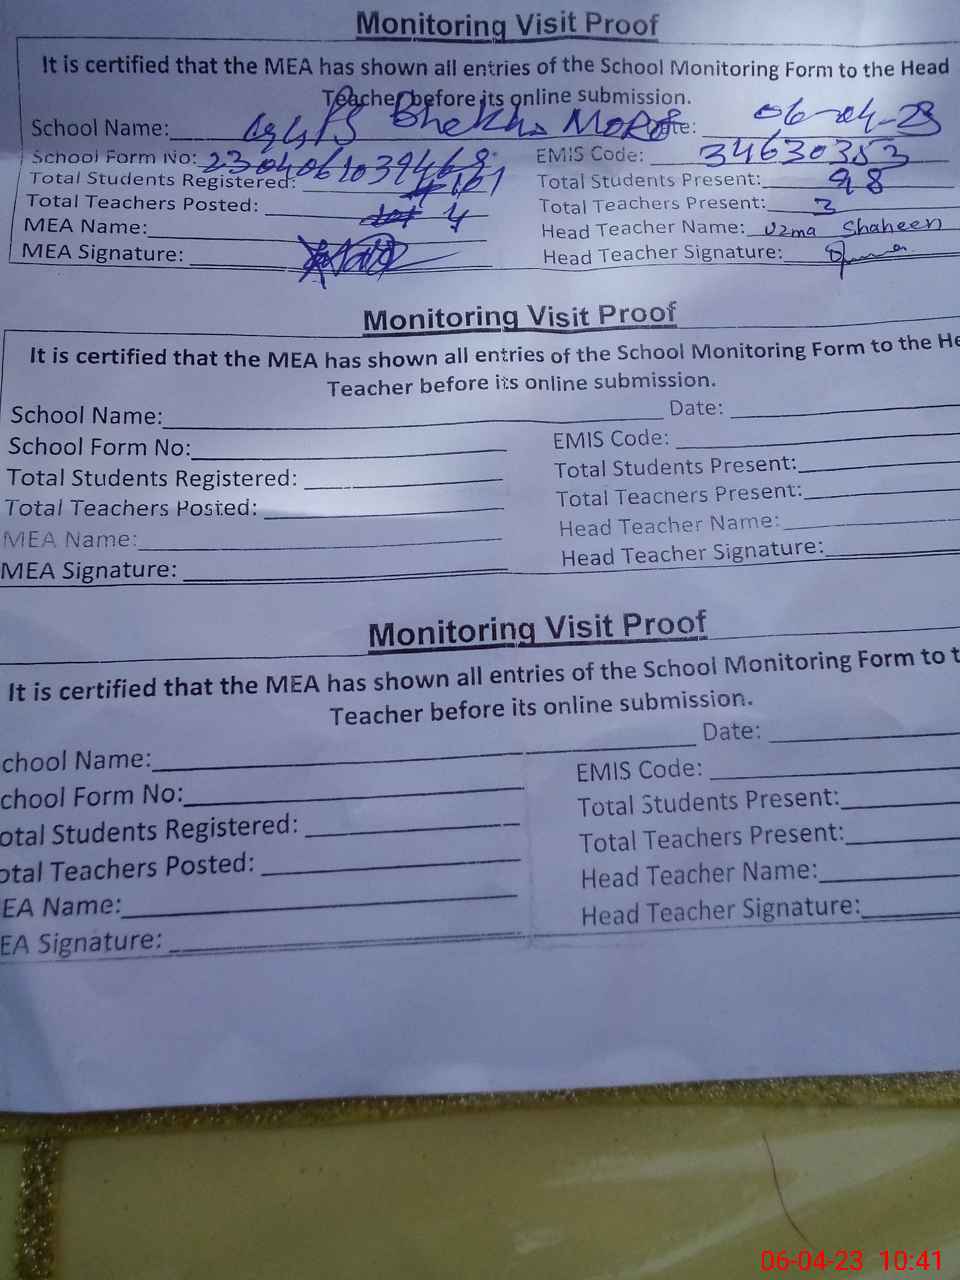 Monitoring Visit Proof
It is certified that the MEA has shown all entries of the School Monitoring Form to the Head
Teacher before its online submission.
School Name: GGPS Bhekho Moral Date: 06-04-23
School Form No: EMIS Code: 34630353
Total Students Registered: 101 Total Students Present: 98
Total Teachers Posted: 4 Total Teachers Present: 3
MEA Name: Head Teacher Name: Uzma Shaheen
MEA Signature: Head Teacher Signature:
Monitoring Visit Proof
It is certified that the MEA has shown all entries of the School Monitoring Form to the He
Teacher before its online submission.
School Name: Date:
School Form No: EMIS Code:
Total Students Registered: Total Students Present:
Total Teachers Posted: Total Teachers Present:
MEA Name: Head Teacher Name:
MEA Signature: Head Teacher Signature:
Monitoring Visit Proof
It is certified that the MEA has shown all entries of the School Monitoring Form to t
Teacher before its online submission.
chool Name: Date:
chool Form No: EMIS Code:
otal Students Registered: Total Students Present:
otal Teachers Posted: Total Teachers Present:
EA Name: Head Teacher Name:
EA Signature: Head Teacher Signature:
06-04-23 10:41